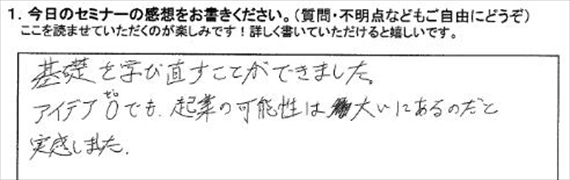 1. 今日のセミナーの感想をお書きください。(質問・不明点などもご自由にどうぞ)
ここを読ませていただくのが楽しみです！詳しく書いていただけると嬉しいです。
基礎を学び直すことができました。
ゼロ
アイデア0でも、起業の可能性は大いにあるのだと
実感しました。